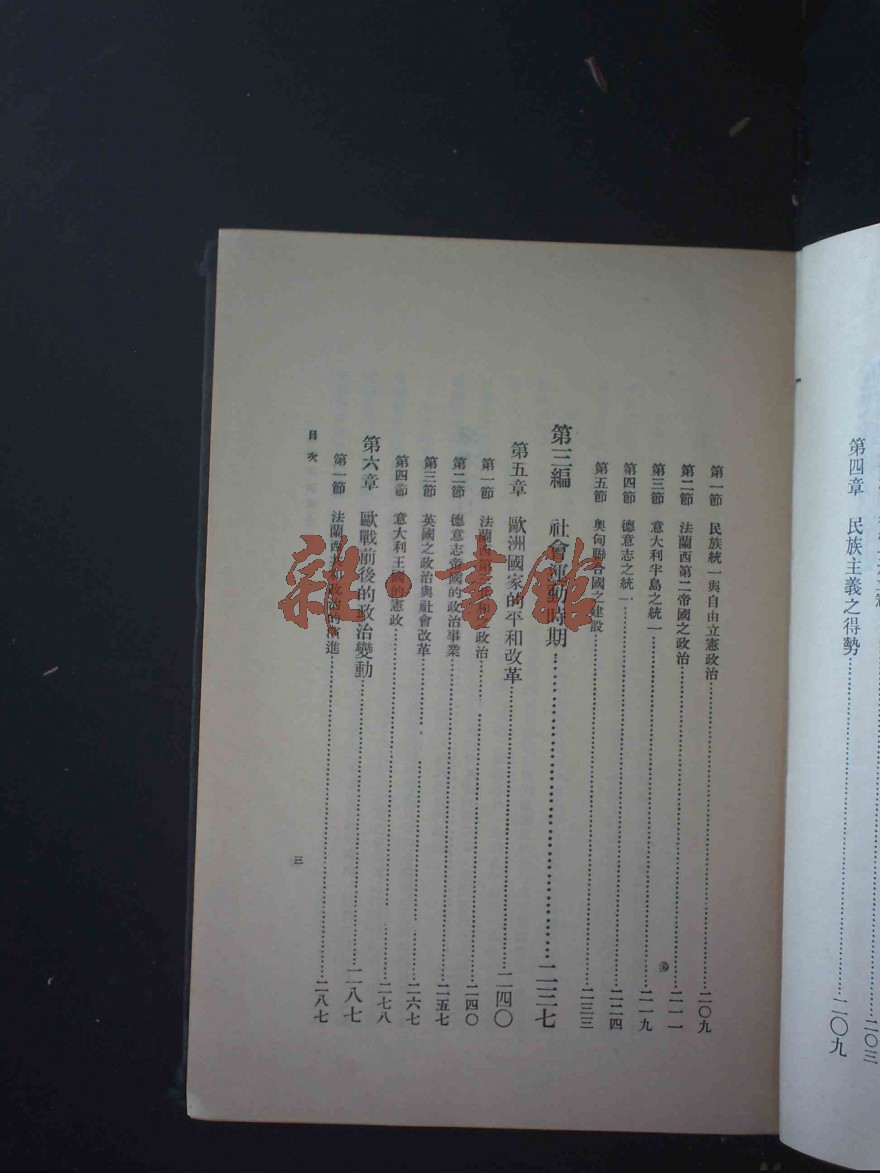 二〇三
第四章 民族主義之得勢 二〇九
第一節 民族統一與自由立憲政治 二〇九
第二節 法蘭西第二帝國之政治 二一一
第三節 意大利半島之統一 二一九
第四節 德意志之統一 二二四
第五節 奧匈聯合國之建設 二三三
第三編 社會運動時期 二三七
第五章 歐洲國家的平和改革 二四〇
第一節 法蘭西第三共和之政治 二四〇
第二節 德意志帝國的政治事業 二五七
第三節 英國之政治與社會改革 二六七
第四節 意大利王國的憲政 二七八
第六章 歐戰前後的政治變動 二八七
第一節 法蘭西共和政治的演進 二八七
目次
三
雜·書館